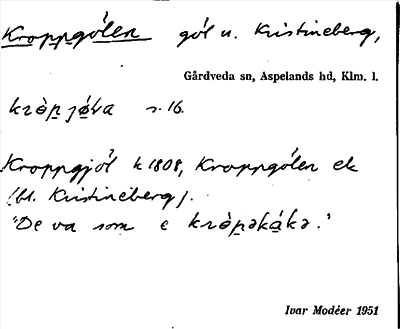 Kroppgölen göl n. Kristineberg,
Gårdveda sn, Aspelands hd, Klm. l.
s. 16.
Kroppgjöl k 1808, Kroppgölen ek
(bl. Kristineberg).
"De va som e kròp̲əká̲kə."
Ivar Modéer 1951